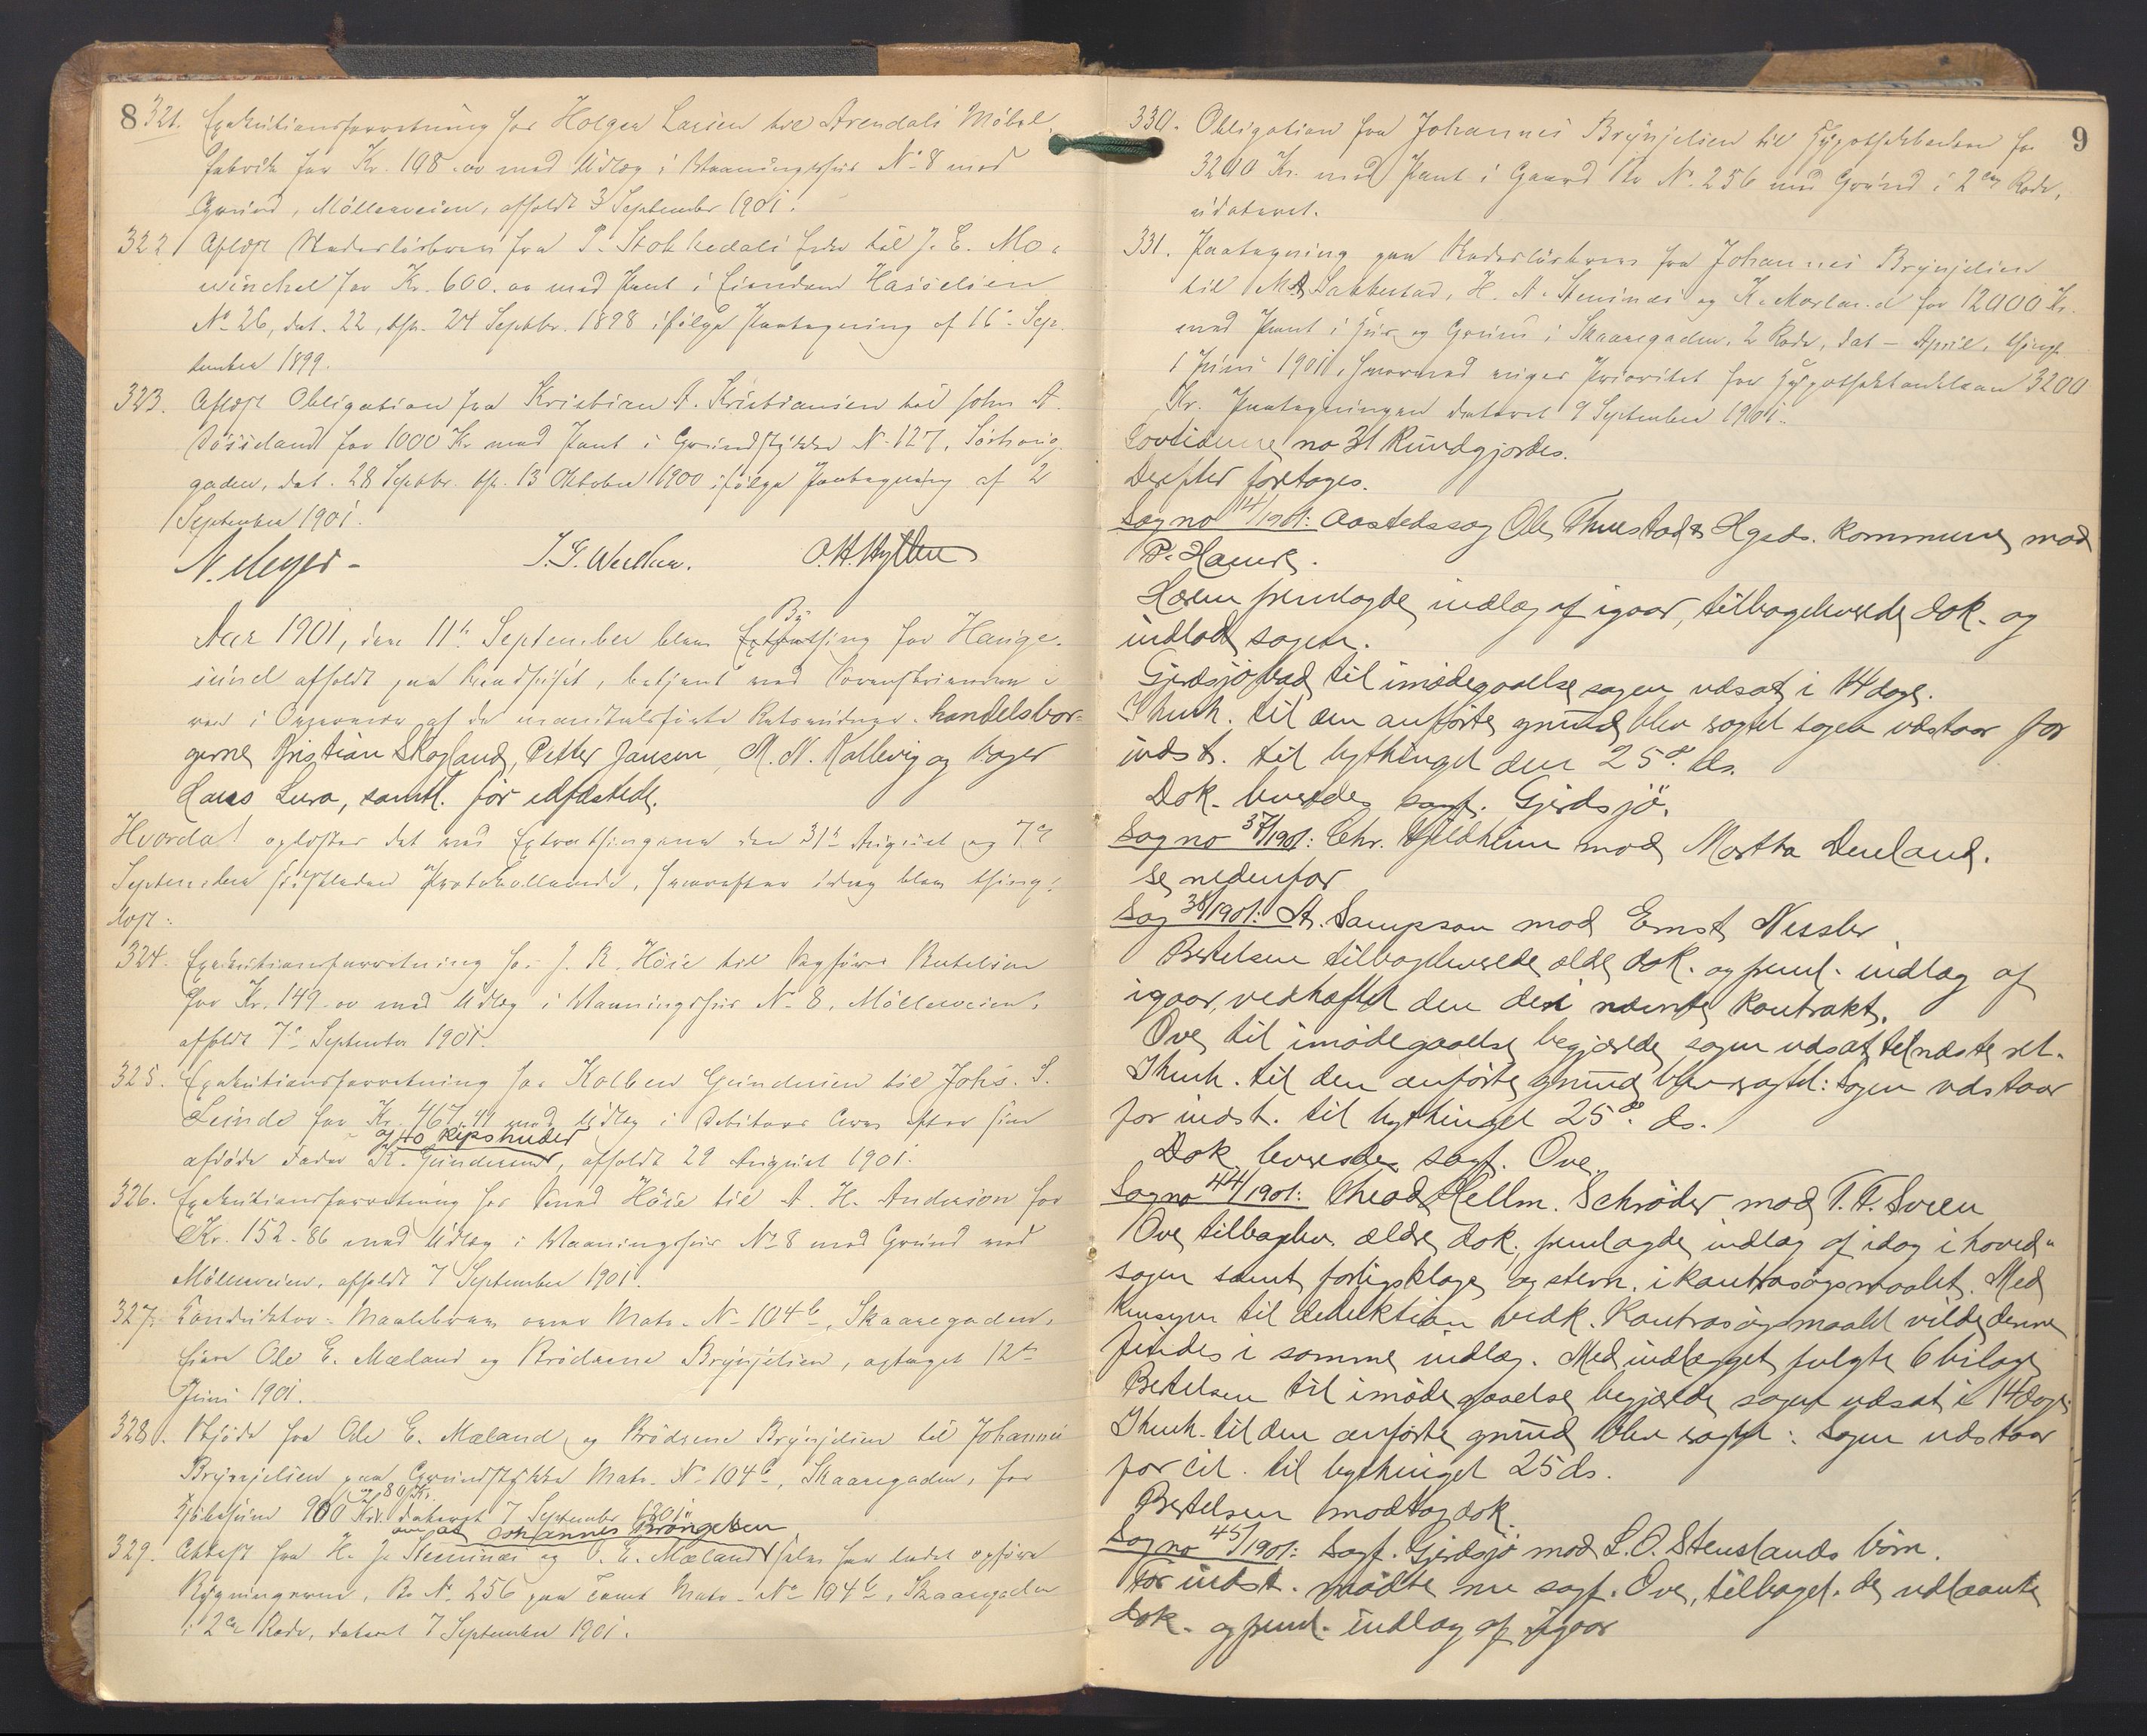 8
321. Exekutionsforretning hos Holger Larsen til Arendals Möbel
fabrik for Kr. 108.00 med Udlæg i Vaaningshus No 8 med
Grund, Mölleveien, afholdt 3 September 1901.
322 Aflyst Skadeslösbrev fra P. Stokkedals Enke til J. E. Mo-
winckel for Kr. 600.00 med Pant i Eiendom Hasselsien
No 26, dat. 22, thl. 24 Septbr. 1898 ifölge Paategning af 16 Sep-
tember 1899.
323. Aflyst Obligation fra Kristian A. Kristiansen til John A.
for 1000 Kr med Pant i Grundstykke No 127, Sörhaug-
gaden, dat. 28 Septbr. thl. 13 Oktober 1900 ifölge Paategning af 2
September 1901.
N. Meyer O. H. Hyllen
By
Aar 1901, den 11te September blev Extrathing for Hauge-
sund afholdt paa Raadhuset, betjent med Sorenskriveren i
ved i Overvær af de mandtalsförte Retsvidner handelsbor-
gerne Kristian Skogland, Petter Jansen, M. N. Kallevig og bager
Hans Lura, samtl. för edfæstede.
Hvorda oplæstes det ved Extrathingene den 31te August og 7de
September Protokollerede, hvorefter idag blev thing-
lyst:
324. Exekutionsforretning hos J. R. Höie til Sagförer Bertelsen
for Kr. 149.00 med Udlæg i Vaaningshus No 8, Mölleveien,
afholdt 7de September 1901.
325. Exekutionsforretning hos Kolben Gundersen til Johs. S.
Lunde for Kr. 467.41 med Udlæg i Debitors Arv efter sin
og 40 kipshuder
afdöde Fader K. Gundersen, afholdt 29 August 1901.
326. Exekutionsforretning hos Knud Höie til A. H. Anderson for
Kr. 152.86 med Udlæg i Vaaningshus No 8 med Grund ved
Mölleveien, afholdt 7 September 1901.
327. Konduktör-Maalebrev over Matr. No 104b, Skaaregaden,
Eiere Ole E. Mæland og Brödrene Brynjelsen, optaget 12te
Juni 1901.
328. Skjöde fra Ole E. Mæland og Brödrene Brynjelsen til Johannes
Brynjelsen paa Grundstykke Matr. No 104b, Skaaregaden, for
Kjöbesum 900 Kr. dateret 7 September 1901.
om at Johannes Bröngelsen
329. Attest fra H. J. Steensnæs og O. E. Mæland selv har ladet opföre
Bygningerne, Br No. 256 paa Tomt Matr. No 104b, Skaaregaden
i 2den Rode, dateret 7 September 1901.
9
330. Obligation fra Johannes Brynjelsen til Hypothekbanken for
3200 Kr. med Pant i Gaard Br No. 256 med Grund i 2den Rode,
udateret.
331. Paategning paa Skadeslösbrev fra Johannes Brynjelsen
til M. Labbestad, H. A. Stensnæs og K. Morland for 12000 Kr.
med Pant i Hus og Grund i Skaaregaden, 2 Rode, dat – April, thingl.
1 Juni 1901, hvorved viges Prioritet for Hypotheklaan 3200
Kr. Paategningen dateret 9 September 1901.
Lovtidende no 31 kundgjordes.
Derefter foretoges.
Sag no 14/1901: Aastedssag Ole Thuestad & Hgsds. kommune mod
P. Hauske.
Hærem fremlagde indlæg af igaar, tilbageleverede dok. og
indlod sagen.
Gjerdsjö bad til imödegaaelse sagen udsat i 14 dage.
Thi til den anförte grund blev sagtet sagen udstaar for
indst. til bythinget den 25de ds.
Dok. leveredes sagf. Gjerdsjö.
Sag no 37/1901: Chr. Kjeldheim mod Martha Dueland.
se nedenfor
Sag 38/1901: A. Sampson mod Ernst Nessler
Bertelsen tilbageleverede ældre dok. og freml. indlæg af
igaar, vedhæftet den deri nævnte kontrakt.
Ove til imödegaaelse begjærede sagen udsat til næste ret.
Thi til den anförte grund blev sagtet: Sagen udstaar
for indst. til bythinget 25de ds.
Dok leveredes sagf. Ove.
Sag no 44/1901: Theod. Hellm. Schröder mod T. F. Sveen
Ove tilbagelev. ældre dok., fremlagde indlæg af idag i hoved-
sagen samt forligsklage og stevn. i kontrasögsmaalet. Med
hensyn til deduktion vedk. kontrasögsmaalet vilde denne
findes i samme indlæg. Med indlægget fulgte 6 bilage.
Bertelsen til imödegaaelse begjærede sagen udsat i 14 dage.
Thi til den anförte grund blev sagtet: Sagen udstaar
for cit. til bythinget 25 ds.
Bertelsen modtog dok.
Sag no 45/1901: Sagf. Gjerdsjö mod L. O. Stenslands börn.
For indst. mödte nu sagf. Ove, tilbagel. de udlaante
dok. og freml. indlæg af igaar